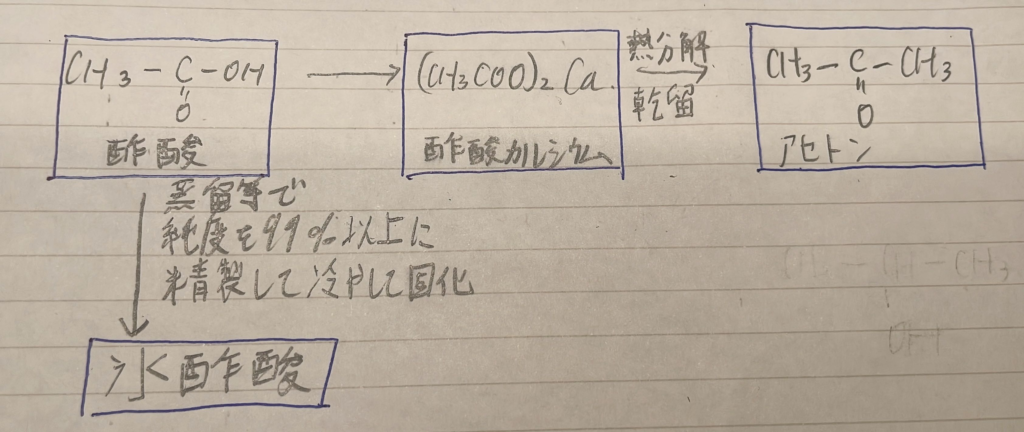 CH3-C-OH
"
O
酢酸
(CH3COO)2Ca
酢酸カルシウム
熱分解
乾留
CH3-C-CH3
"
O
アセトン
蒸留等で
純度を99%以上に
精製して冷やして固化
氷酢酸